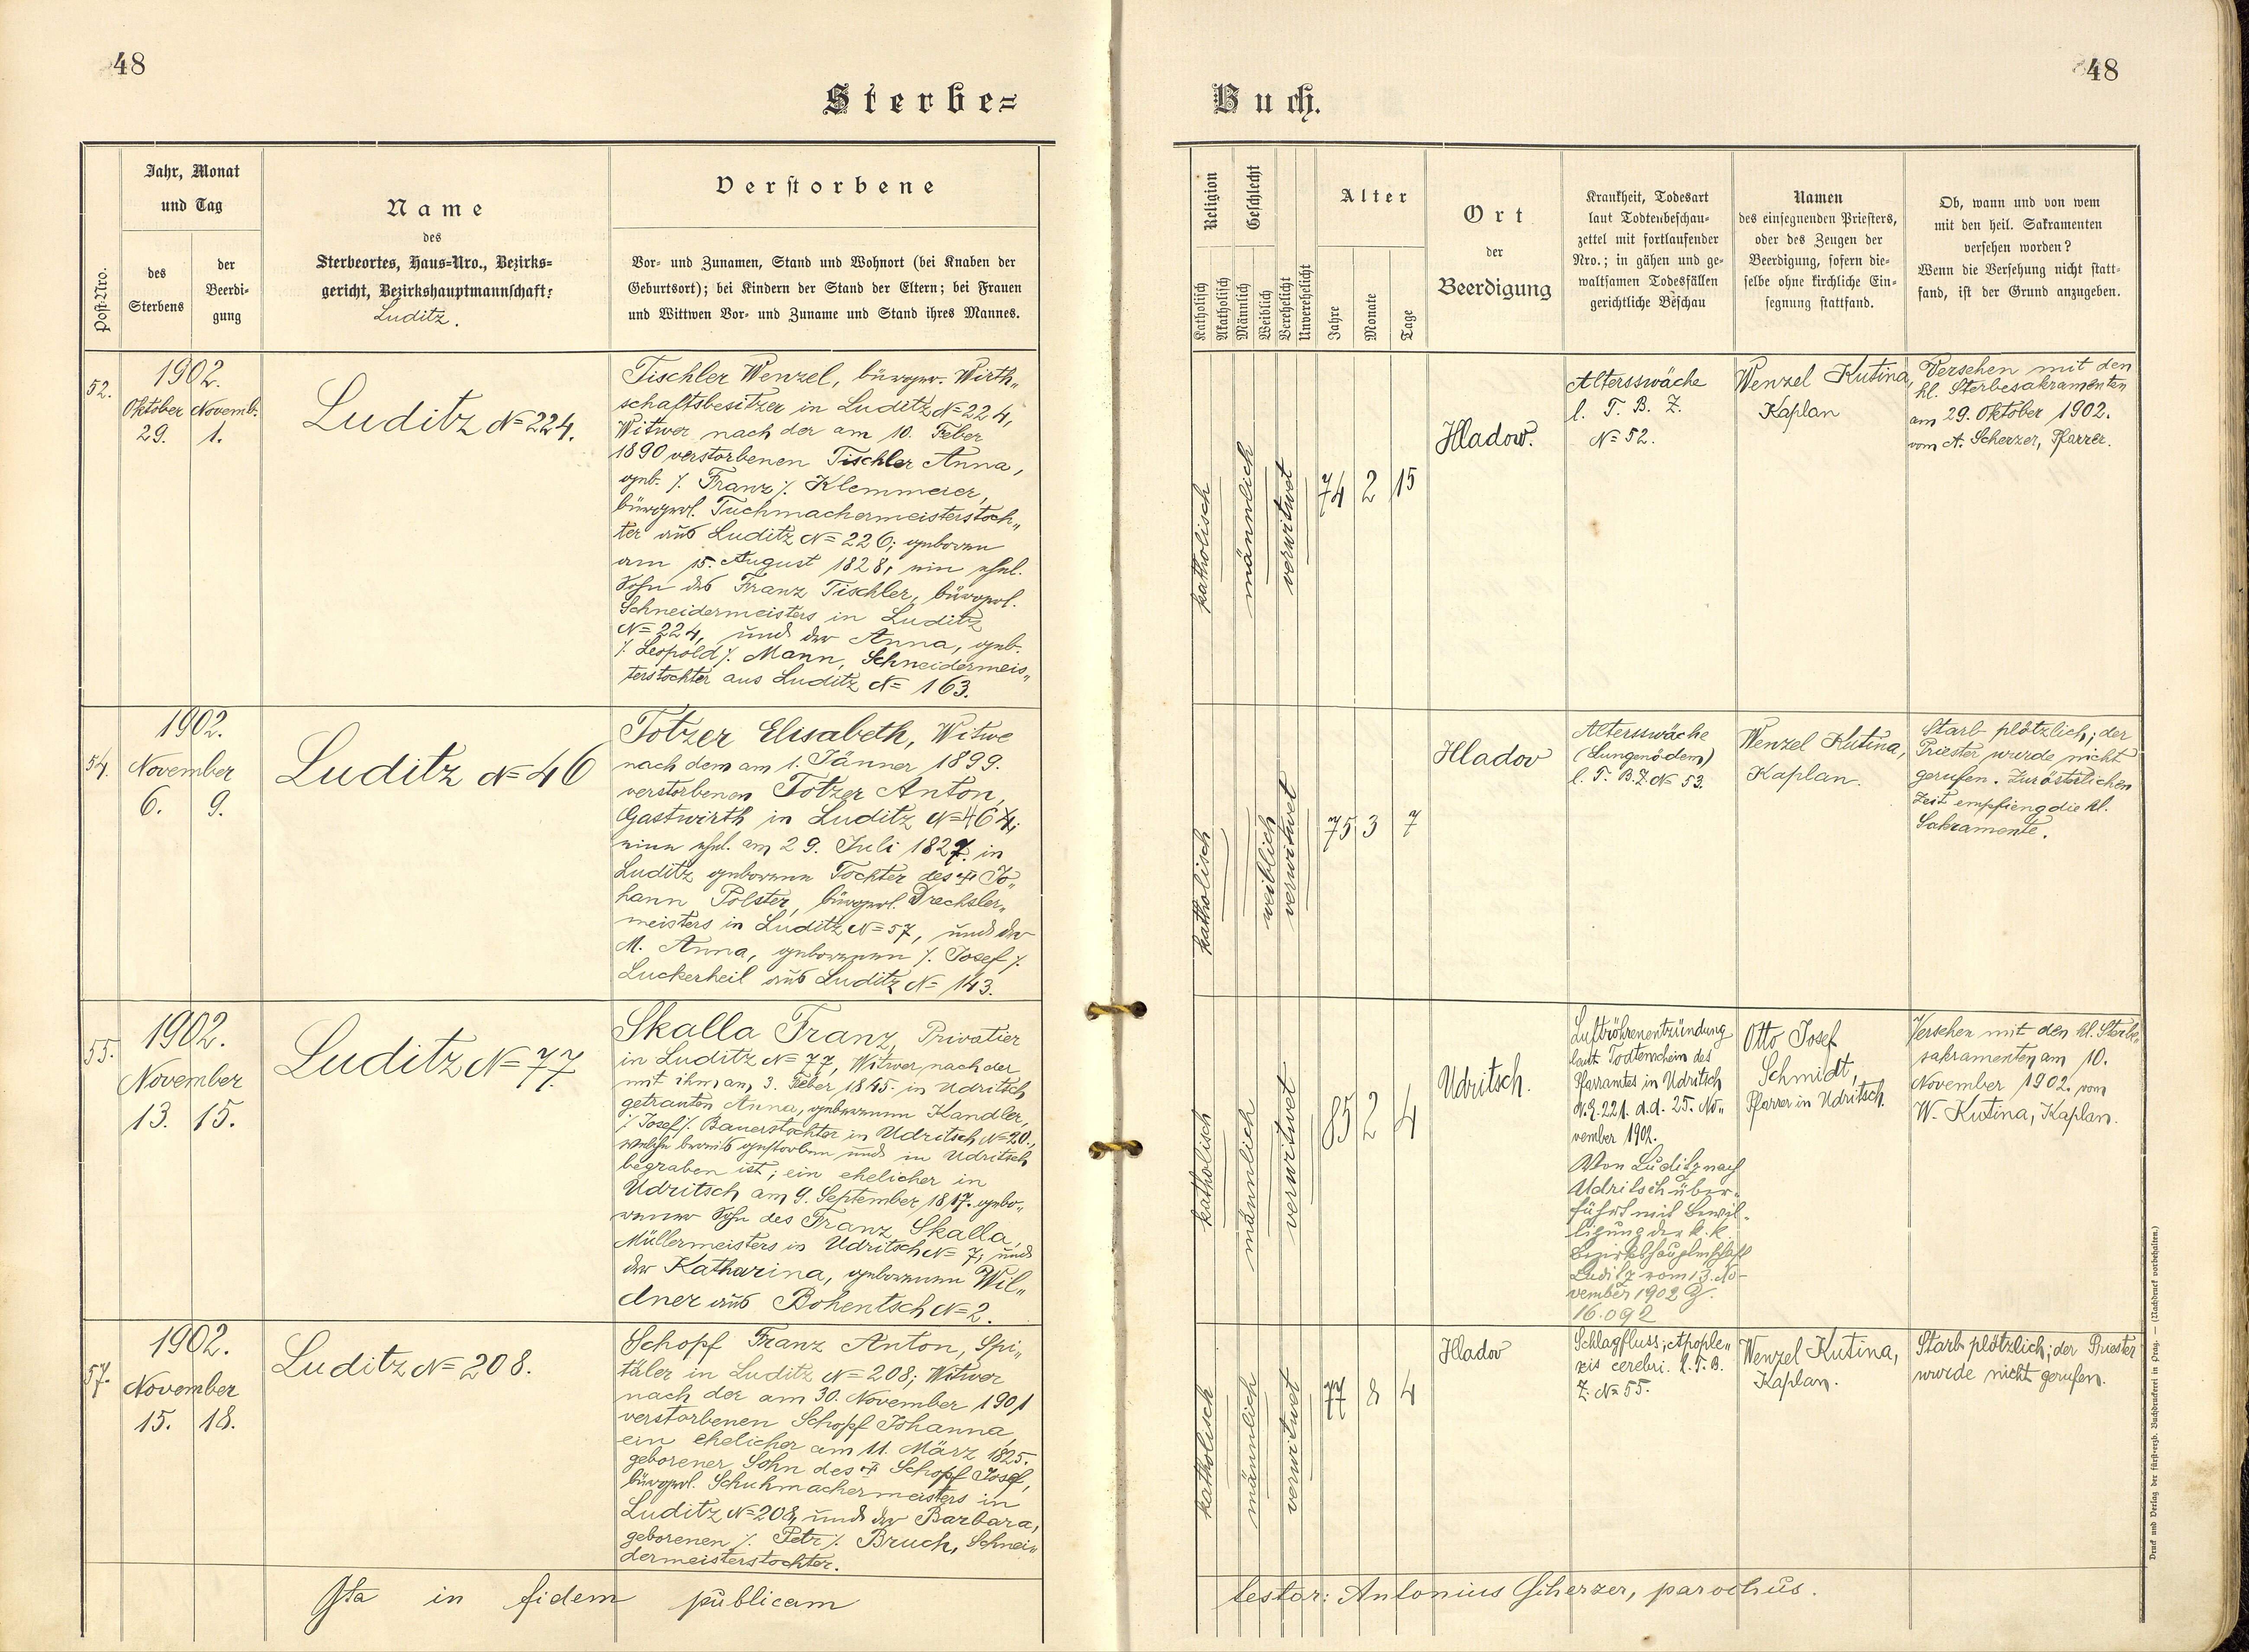 48
48
Sterbe=
Buch.
Post-Nro.
Jahr, Monat
und Tag
des
Sterbens
der
Beerdi-
gung
Name
des
Sterbeortes, Haus-Nro., Bezirks-
gericht, Bezirkshauptmannschaft:
Luditz.
Verstorbene
Vor- und Zunamen, Stand und Wohnort (bei Knaben der
Geburtsort); bei Kindern der Stand der Eltern; bei Frauen
und Wittwen Vor- und Zuname und Stand ihres Mannes.
Religion
Katholisch
Akatholisch
Geschlecht
Männlich
Weiblich
Verehelicht
Unverehelicht
Alter
Jahre
Monate
Tage
Ort
der
Beerdigung
Krankheit, Todesart
laut Todtenbeschau-
zettel mit fortlaufender
Nro.; in gähen und ge-
waltsamen Todesfällen
gerichtliche Beschau
Namen
des einsegnenden Priesters,
oder des Zeugen der
Beerdigung, sofern die-
selbe ohne kirchliche Ein-
segnung stattfand.
Ob, wann und von wem
mit den heil. Sakramenten
versehen worden?
Wenn die Versehung nicht statt-
fand, ist der Grund anzugeben.
52.
1902.
Oktober Novemb.
29. 1.
Luditz N= 224.
Tischler Wenzel, bürgerl. Wirth„
schaftsbesitzer in Luditz N= 224,
Witwer nach der am 10. Feber
1890 verstorbenen Tischler Anna,
geb. /. Franz /. Klemmeier,
bürgerl. Tuchmachermeisterstoch„
ter aus Luditz N= 226; geboren
am 15. August 1828, ein ehel.
Sohn des Franz Tischler, bürgerl.
Schneidermeisters in Luditz
N= 224, und der Anna, geb.
/. Leopold /. Mann, Schneidermeis„
terstochter aus Luditz N= 163.
katholisch
männlich
verwitwet
74 2 15
Hladow.
Altersswäche
l. T. B. Z.
N= 52.
Wenzel Kutina,
Kaplan
Versehen mit den
hl. Sterbesakramenten
am 29. Oktober 1902.
vom A. Scherzer, Pfarrer.
54.
1902.
November
6. 9.
Luditz N= 46
Totzer Elisabeth, Witwe
nach dem am 1. Jänner 1899.
verstorbenen Totzer Anton,
Gastwirth in Luditz N= 46
eine ehel. am 29. Juli 1827. in
Luditz geborene Tochter des † Jo„
hann Polster, bürgerl. Drechsler„
meisters in Luditz N= 57, und der
M. Anna, geborenen /. Josef /.
Luckerheil aus Luditz N= 143.
katholisch
weiblich
verwitwet
75 3 7
Hladov
Altersswäche
(Lungenödem)
l. T. B. Z. N= 53.
Wenzel Kutina,
Kaplan.
Starb plötzlich; der
Priester wurde nicht
gerufen. Zur österlichen
Zeit empfieng die hl.
Sakramente.
55.
1902.
November
13. 15.
Luditz N= 77.
Skalla Franz, Privatier
in Luditz N= 77, Witwer nach der
mit ihm am 3. Feber 1845. in Udritsch
getrauten Anna, geborenen Kandler,
/. Josef /. Bauerstochter in Udritsch N= 20.,
welche bereits gestorben und in Udritsch
begraben ist; ein ehelicher in
Udritsch am 9. September 1817. gebo„
rener Sohn des Franz Skalla,
Müllermeisters in Udritsch N= 7, und
der Katharina, geborenen Wil„
dner aus Bohentsch N= 2.
katholisch
männlich
verwitwet
85 2 4
Udritsch.
Luftröhrenentzündung
laut Todtenschein des
Pfarramtes in Udritsch
N.E. 221. d.d. 25. No„
vember 1902.
Von Luditz nach
Udritsch über-
führt mit Bewil-
ligung der k. k.
Bezirkshauptmschaft
Luditz vom 13. No-
vember 1902 Z.
16.092
Otto Josef
Schmidt,
Pfarrer in Udritsch.
Versehen mit den hl. Sterbe„
sakramenten am 10.
November 1902. vom
W. Kutina, Kaplan.
57.
1902.
November
15. 18.
Luditz N= 208.
Schopf Franz Anton, Spi„
täler in Luditz N= 208; Witwer
nach der am 30. November 1901
verstorbenen Schopf Johanna,
ein ehelicher am 11. März 1825.
geborener Sohn des † Schopf Josef,
bürgerl. Schuhmachermeisters in
Luditz N= 208, und der Barbara,
geborenen /. Petr /. Bruch, Schnei„
dermeisterstochter.
katholisch
männlich
verwitwet
77 8 4
Hladov
Schlagfluss; Apople„
xis cerebri. l. T. B.
Z. N= 55.
Wenzel Kutina,
Kaplan.
Starb plötzlich; der Priester
wurde nicht gerufen.
Ita in fidem publicam
testor: Antonius Scherzer, parochus.
Druck und Verlag der fürsterzb. Buchdruckerei in Prag. — (Nachdruck vorbehalten.)